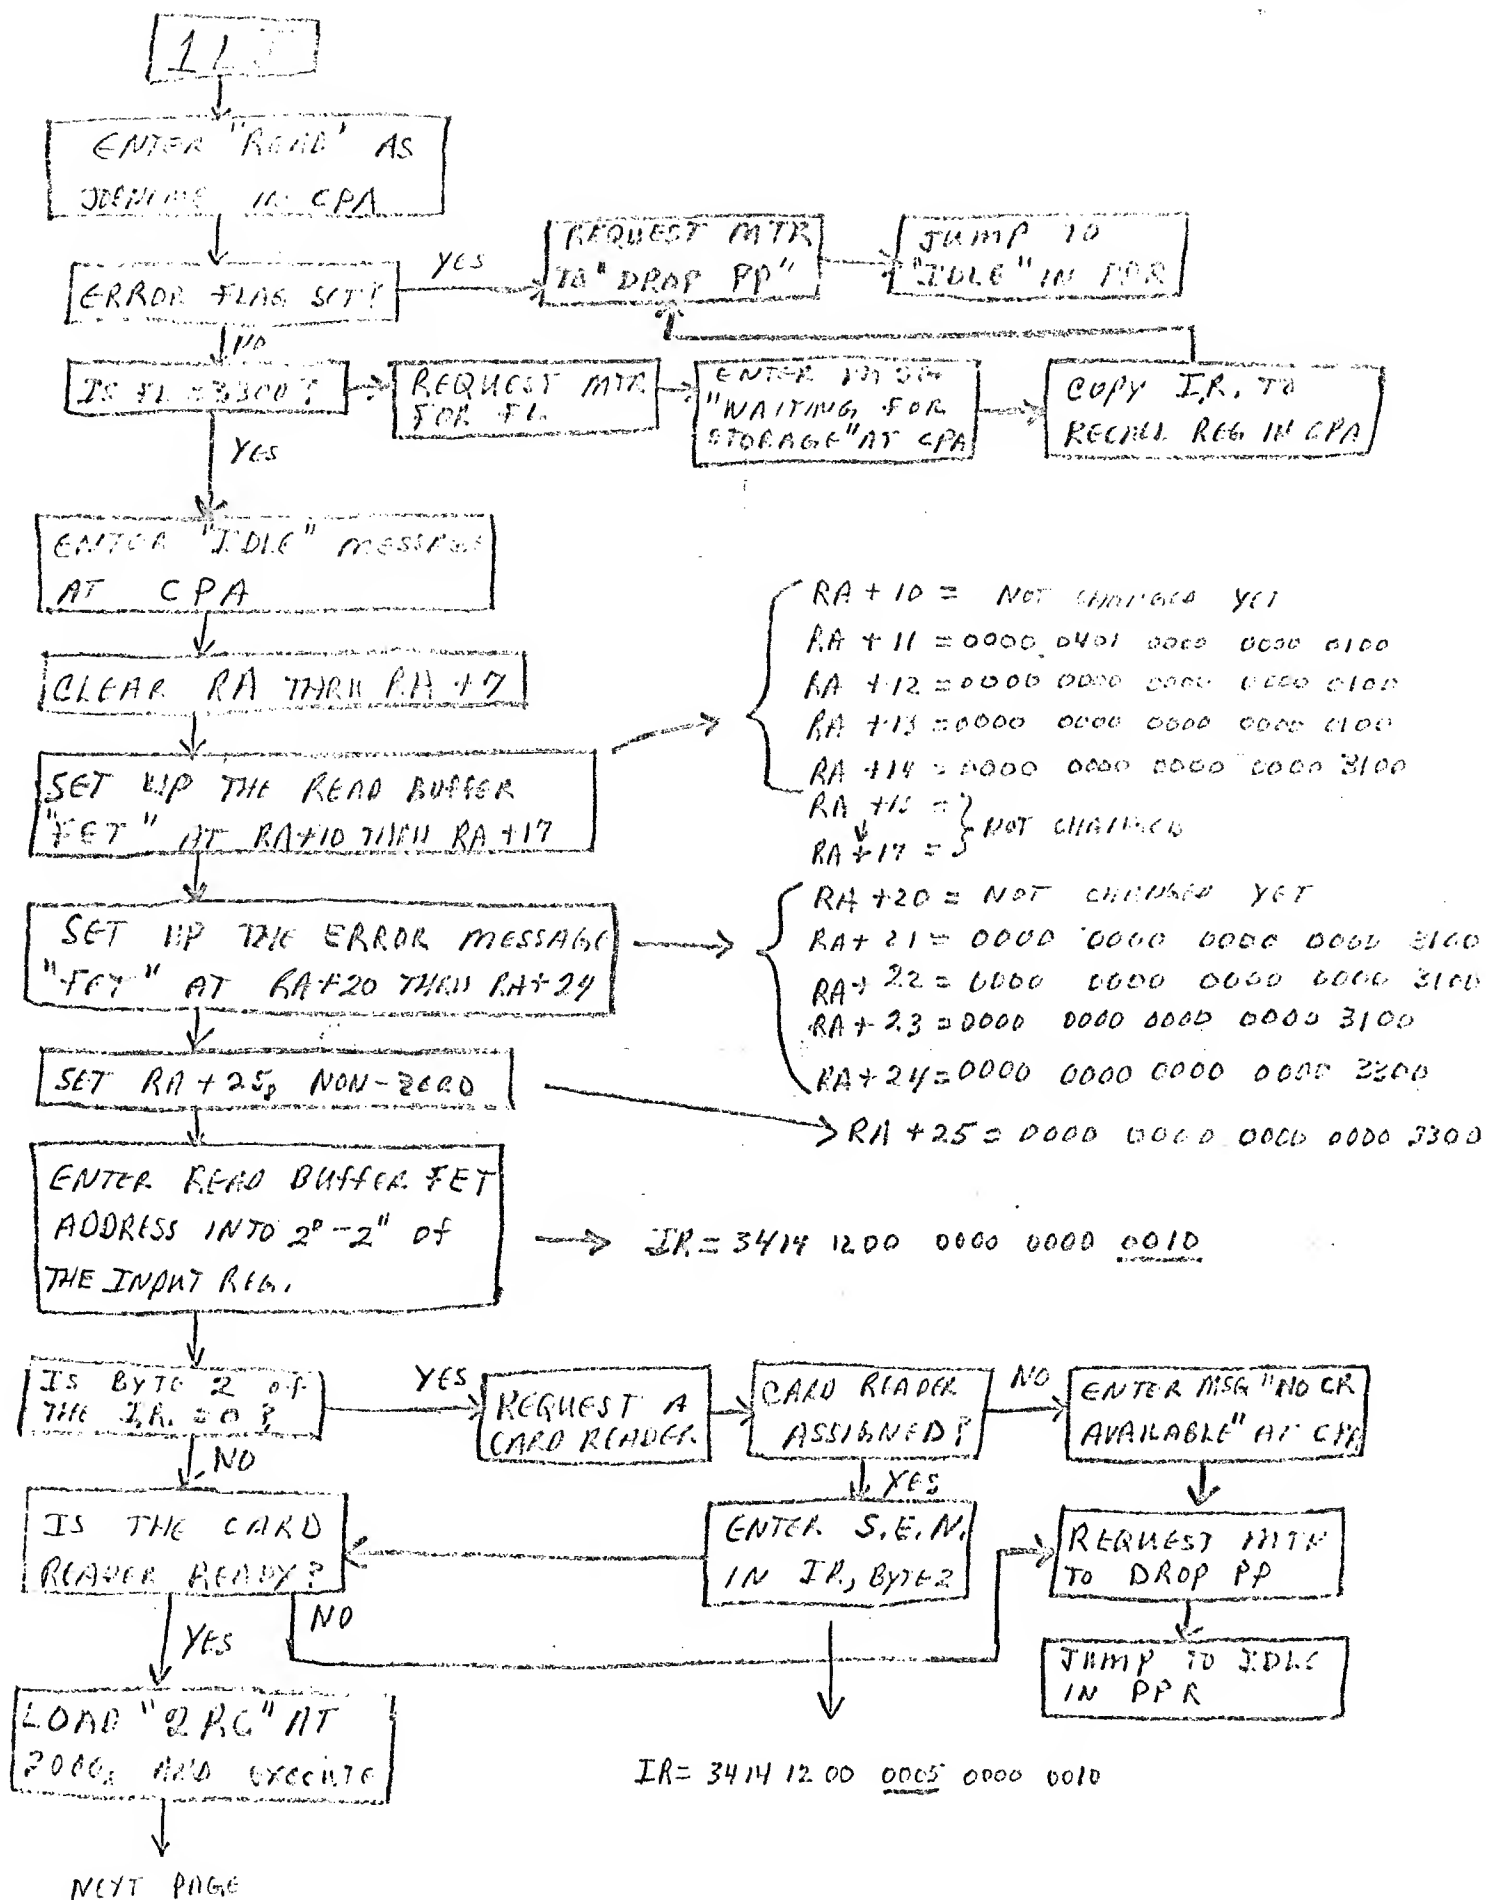 1L
ENTER "READ" AS
IN CPA
ERROR FLAG SET?
YES
REQUEST MTR
TO "DROP PP"
JUMP TO
"IDLE" IN PPR
NO
IS FL = 3300?
REQUEST MTR
FOR FL
ENTER MSG
"WAITING FOR
STORAGE" AT CPA
COPY I.R. TO
RECALL REG IN CPA
YES
ENTER "IDLE" MESSAGE
AT CPA
CLEAR RA THRU RA +7
SET UP THE READ BUFFER
"FET" AT RA+10 THRU RA+17
RA + 10 = NOT CHANGED YET
RA + 11 = 0000 0401 0000 0000 0100
RA + 12 = 0000 0000 0000 0000 0100
RA + 13 = 0000 0000 0000 0000 0100
RA + 14 = 0000 0000 0000 0000 3100
RA + 15 =
NOT CHANGED
RA + 17 =
SET UP THE ERROR MESSAGE
"FET" AT RA+20 THRU RA+24
RA + 20 = NOT CHANGED YET
RA + 21 = 0000 0000 0000 0000 3100
RA + 22 = 0000 0000 0000 0000 3100
RA + 23 = 0000 0000 0000 0000 3100
RA + 24 = 0000 0000 0000 0000 3300
SET RA + 25₈ NON-ZERO
RA + 25 = 0000 0000 0000 0000 3300
ENTER READ BUFFER FET
ADDRESS INTO 2⁰ - 2¹¹ OF
THE INPUT REG.
IR = 3414 1200 0000 0000 0010
IS BYTE 2 OF
THE I.R. = 0?
YES
REQUEST A
CARD READER
CARD READER
ASSIGNED?
NO
ENTER MSG "NO CR
AVAILABLE" AT CPA
NO
YES
IS THE CARD
READER READY?
ENTER S.E.N.
IN IR, BYTE 2
REQUEST MTR
TO DROP PP
YES
NO
JUMP TO IDLE
IN PPR
LOAD "2RC" AT
2000₈ AND EXECUTE
IR = 3414 1200 0005 0000 0010
NEXT PAGE